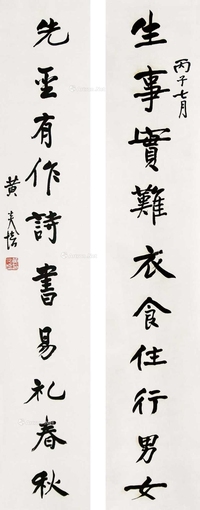 生事實難衣食住行男女
丙子七月
先聖有作詩書易礼春秋
黄炎培